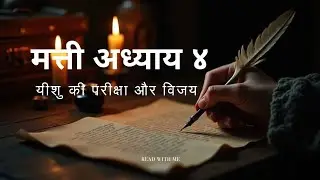 मत्ती अध्याय ४
यीशु की परीक्षा और विजय
READ WITH ME